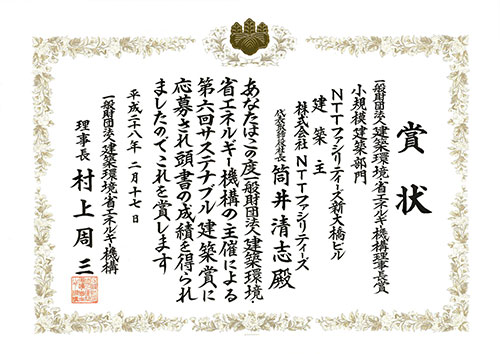 賞状
一般財団法人建築環境・省エネルギー機構理事長賞
小規模建築部門
NTTファシリティーズ新大橋ビル
建築主
株式会社NTTファシリティーズ
代表取締役社長 筒井清志殿
あなたはこの度一般財団法人建築環境
省エネルギー機構の主催による
第六回サステナブル建築賞に
応募され頭書の成績を得られ
ましたのでこれを賞します
平成二十八年 二月十七日
一般財団法人建築環境・省エネルギー機構
理事長 村上周三